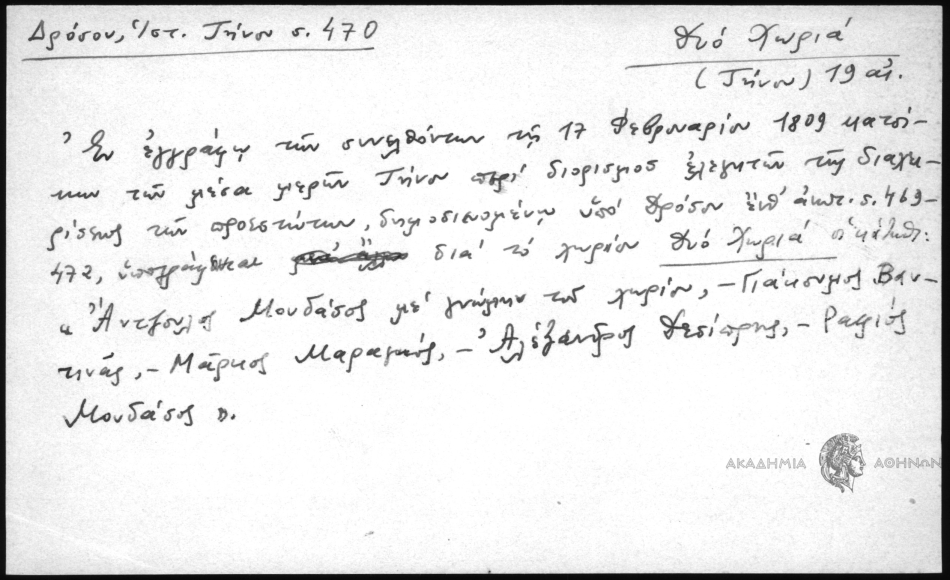 Δρόσου, Ἱστ. Τήνου σ. 470
Δυό Χωριά
(Τήνου) 19 αἰ.
Ἐν ἐγγράφῳ τῶν συνελθόντων τῇ 17 Φεβρουαρίου 1809 κατοί-
κων τῶν μέσα μερῶν Τήνου περί διορισμοῦ ἐλεγκτῶν τῆς διαχει-
ρίσεως τῶν προεστώτων, δημοσιευομένῳ ὑπό Δρόσου ἔνθ' ἀνωτ. σ. 469-
472, ὑπογράφονται διά τό χωρίον Δυό Χωριά οἱ κάτωθι:
« Ἀντζουλος Μουδάσος μέ γνώμην τοῦ χωρίου, – Γιάκουμος Βαν-
τινάς, – Μάρκος Μαραγκός, – Ἀλέξανδρος Δεσίπρης, – Ραφιός
Μουδάσος ».
ΑΚΑΔΗΜΙΑ ΑΘΗΝΩΝ